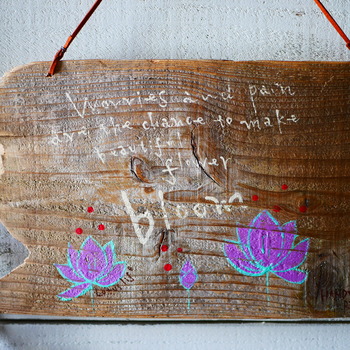 Worries and pain
are the chance to make
beautiful
flower
bloom